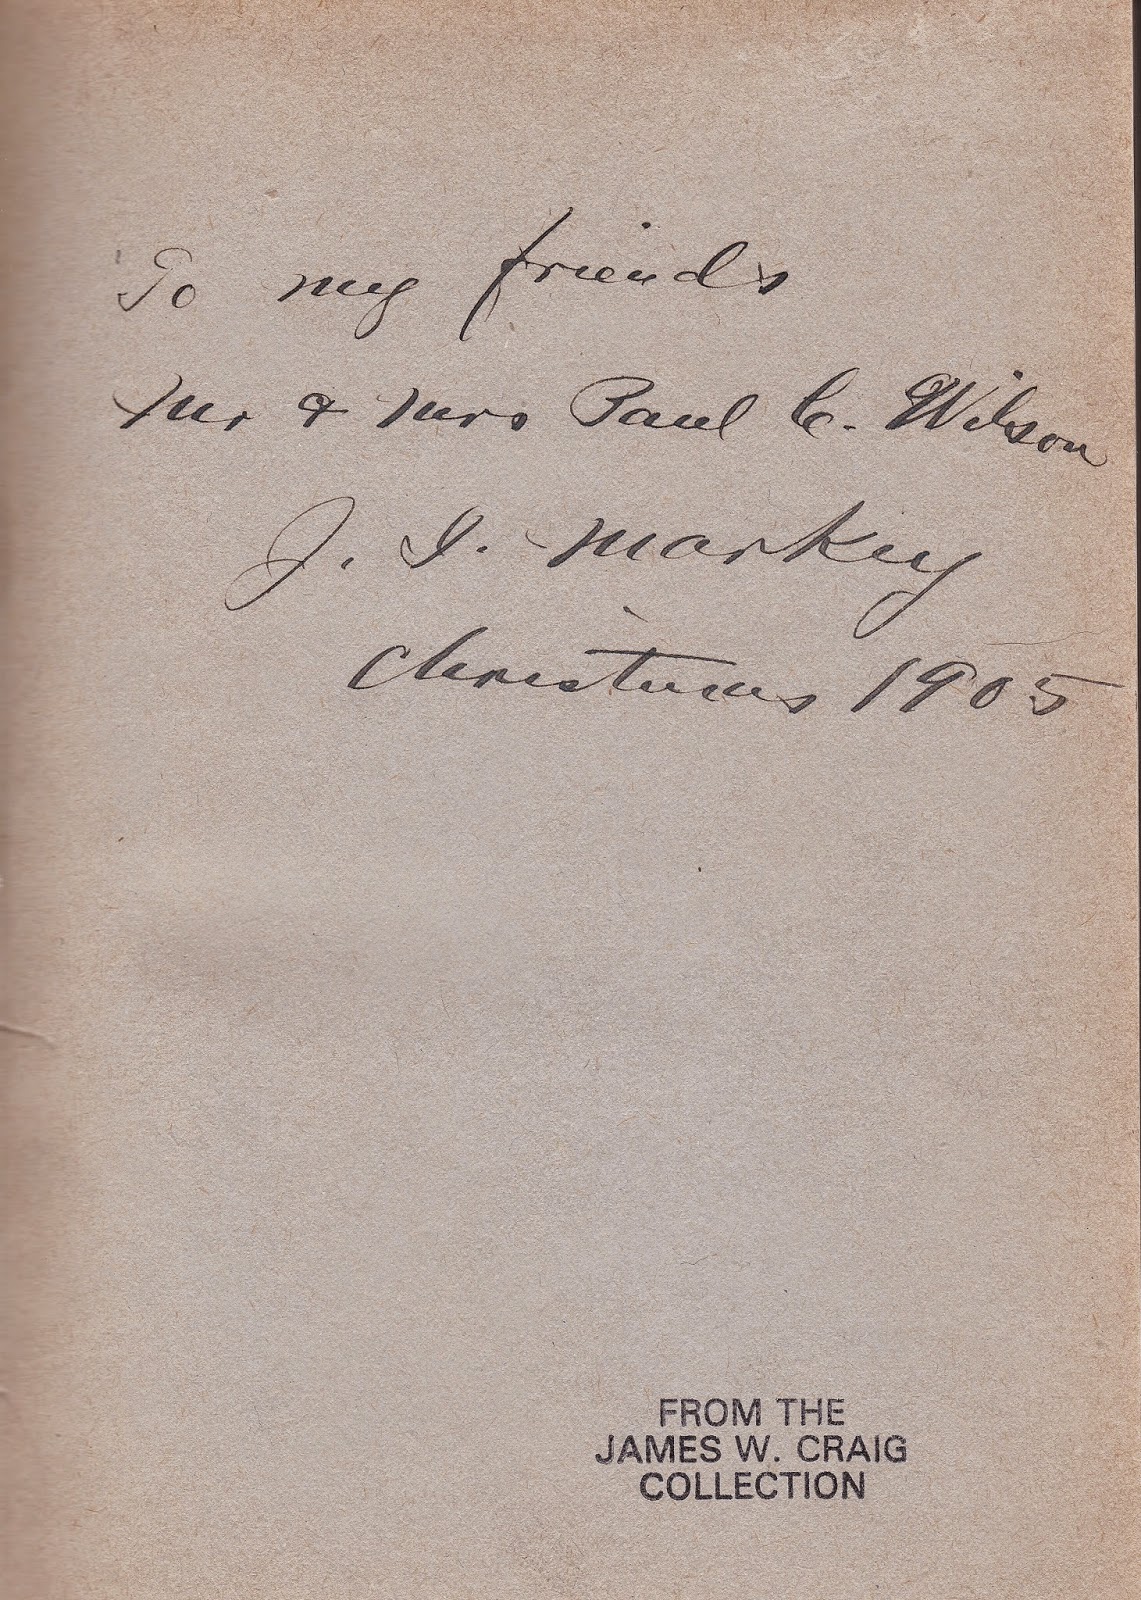 To my friends
Mr & Mrs Paul C. Wilson
J. I. Markey
Christmas 1905
FROM THE
JAMES W. CRAIG
COLLECTION